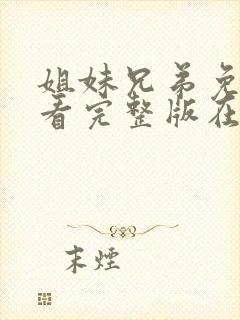 姐妹兄弟免
看完整版在
末煙